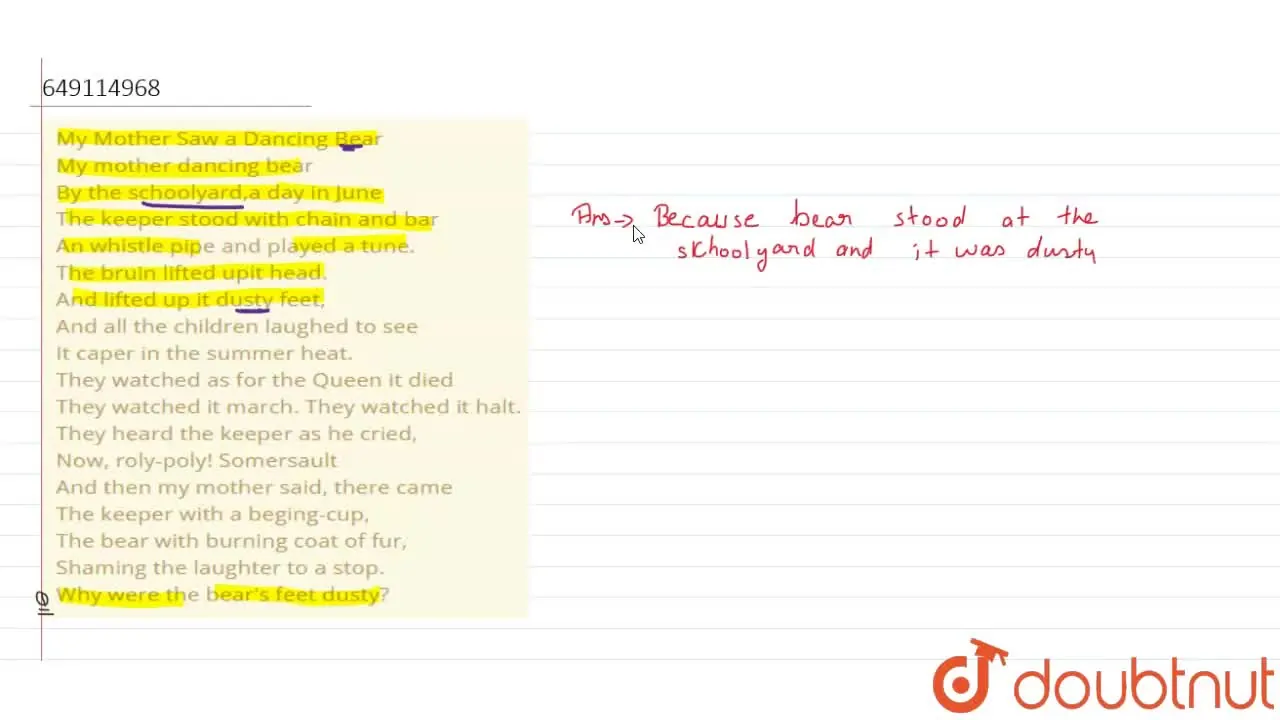 649114968
My Mother Saw a Dancing Bear
My mother dancing bear
By the schoolyard,a day in June
The keeper stood with chain and bar
An whistle pipe and played a tune.
The bruIn lifted upit head.
And lifted up it dusty feet,
And all the children laughed to see
It caper in the summer heat.
They watched as for the Queen it died
They watched it march. They watched it halt.
They heard the keeper as he cried,
Now, roly-poly! Somersault
And then my mother said, there came
The keeper with a beging-cup,
The bear with burning coat of fur,
Shaming the laughter to a stop.
Why were the bear's feet dusty?
Ans-> Because bear stood at the
skhoolyard and it was dusty
doubtnut